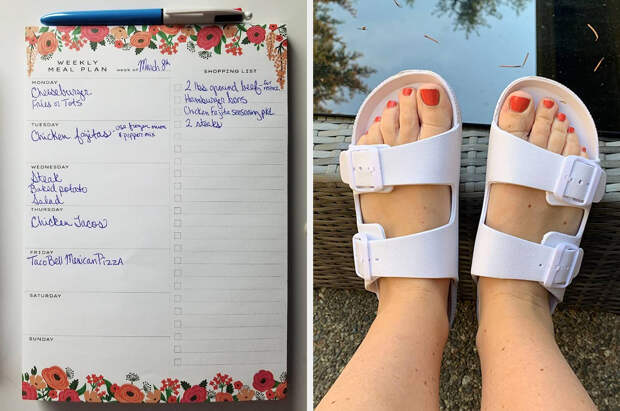 WEEKLY
MEAL PLAN
WEEK OF March 8th
MONDAY
Cheeseburger
Fries or Tots
TUESDAY
Chicken fajitas - use frozen onion
& pepper mix
WEDNESDAY
Steak
Baked potato
Salad
THURSDAY
Chicken Tacos
FRIDAY
Taco Bell Mexican Pizza
SATURDAY
SUNDAY
SHOPPING LIST
2 lbs ground beef for
Hamburger buns
Chicken Fajita seasoning pkt
2 steaks